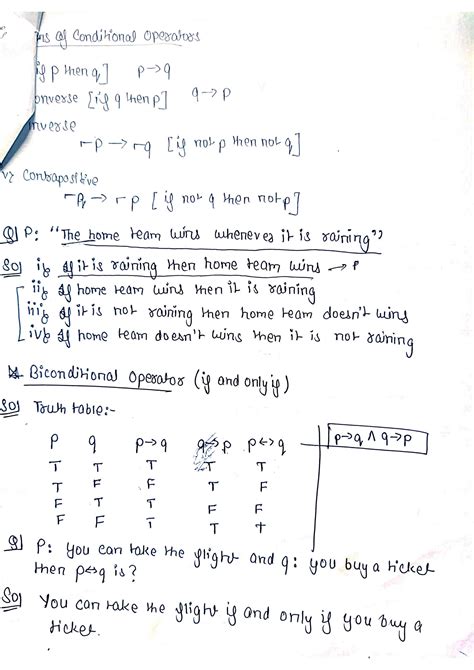 ns of Conditional Operators
if p then q] p→q
onverse [if q then p] q→p
nverse
¬p → ¬q [if not p then not q]
v) Contrapositive
→ ¬p [if not q then not p]
Q) P: "The home team wins whenever it is raining"
Sol i) If it is raining then home team wins → P
ii) If home team wins then it is raining
iii) If it is not raining then home team doesn't wins
iv) If home team doesn't wins then it is not raining
Biconditional Operator (if and only if)
Sol Truth table:-
p q p→q q→p p↔q p→q ∧ q→p
T T T T T
T F F T F
F T T F F
F F T T T
Q) P: you can take the flight and q: you buy a ticket
then p↔q is?
Sol You can take the flight if and only if you buy a
ticket.